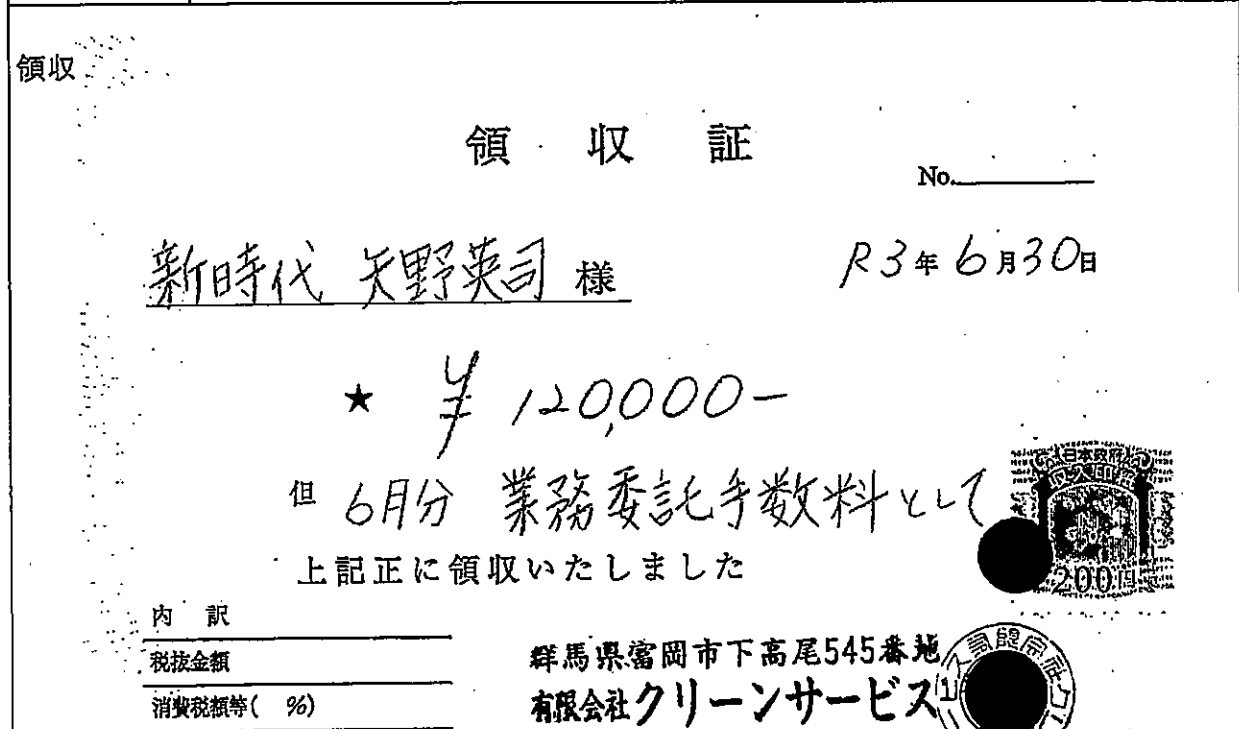 領収
領収証
No.
新時代 矢野英司 様
R3年6月30日
★ ¥120,000-
但 6月分 業務委託手数料として
上記正に領収いたしました
日本政府
200円
内訳
税抜金額
消費税額等( %)
群馬県富岡市下高尾545番地
有限会社クリーンサービス